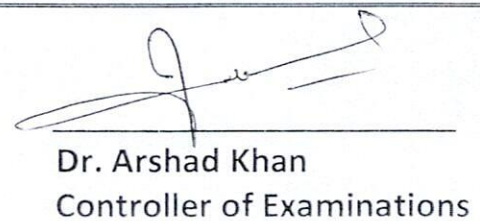 Dr. Arshad Khan
Controller of Examinations